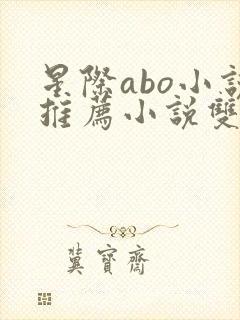 星際abo小說
推薦小說雙
冀寶齋